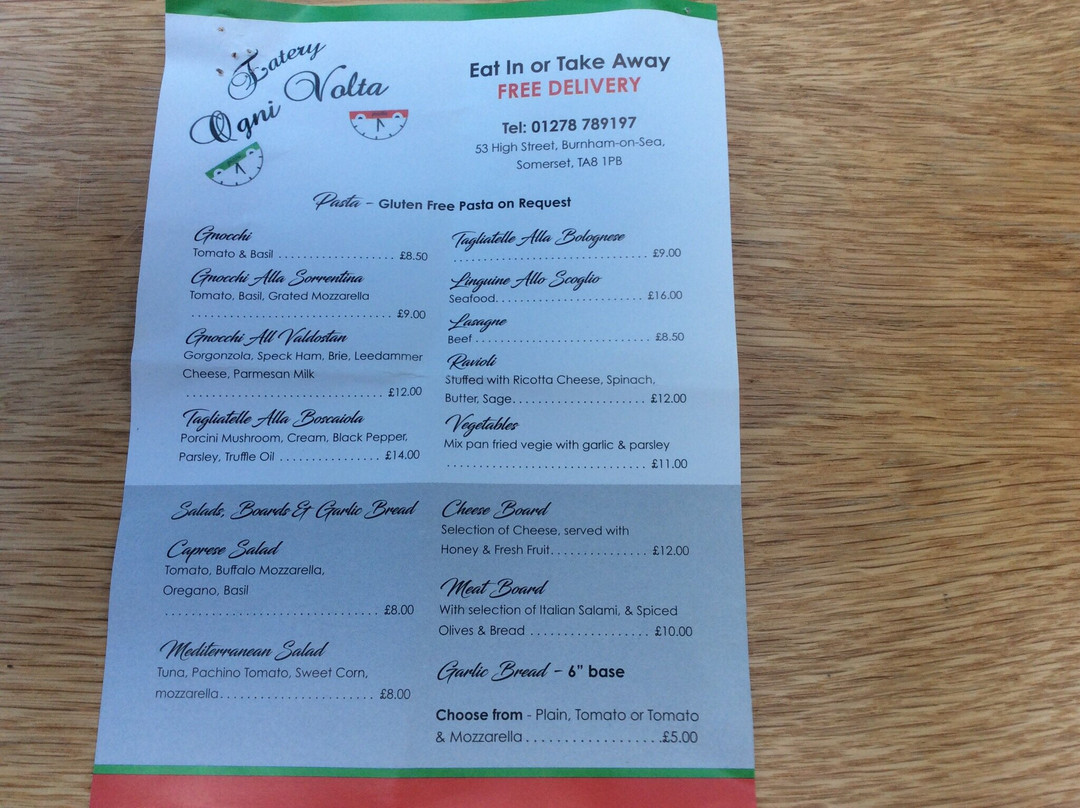 Eatery
Ogni Volta
Eat In or Take Away
FREE DELIVERY
Tel: 01278 789197
53 High Street, Burnham-on-Sea,
Somerset, TA8 1PB
Pasta – Gluten Free Pasta on Request
Gnocchi
Tomato & Basil .................. £8.50
Gnocchi Alla Sorrentina
Tomato, Basil, Grated Mozzarella
................................ £9.00
Gnocchi All Valdostan
Gorgonzola, Speck Ham, Brie, Leedammer
Cheese, Parmesan Milk
................................ £12.00
Tagliatelle Alla Boscaiola
Porcini Mushroom, Cream, Black Pepper,
Parsley, Truffle Oil ................ £14.00
Tagliatelle Alla Bolognese
............................... £9.00
Linguine Allo Scoglio
Seafood....................... £16.00
Lasagne
Beef ........................... £8.50
Ravioli
Stuffed with Ricotta Cheese, Spinach,
Butter, Sage..................... £12.00
Vegetables
Mix pan fried vegie with garlic & parsley
................................ £11.00
Salads, Boards & Garlic Bread
Caprese Salad
Tomato, Buffalo Mozzarella,
Oregano, Basil
.................................. £8.00
Mediterranean Salad
Tuna, Pachino Tomato, Sweet Corn,
mozzarella........................ £8.00
Cheese Board
Selection of Cheese, served with
Honey & Fresh Fruit............... £12.00
Meat Board
With selection of Italian Salami, & Spiced
Olives & Bread ................... £10.00
Garlic Bread – 6" base
Choose from - Plain, Tomato or Tomato
& Mozzarella ....................£5.00